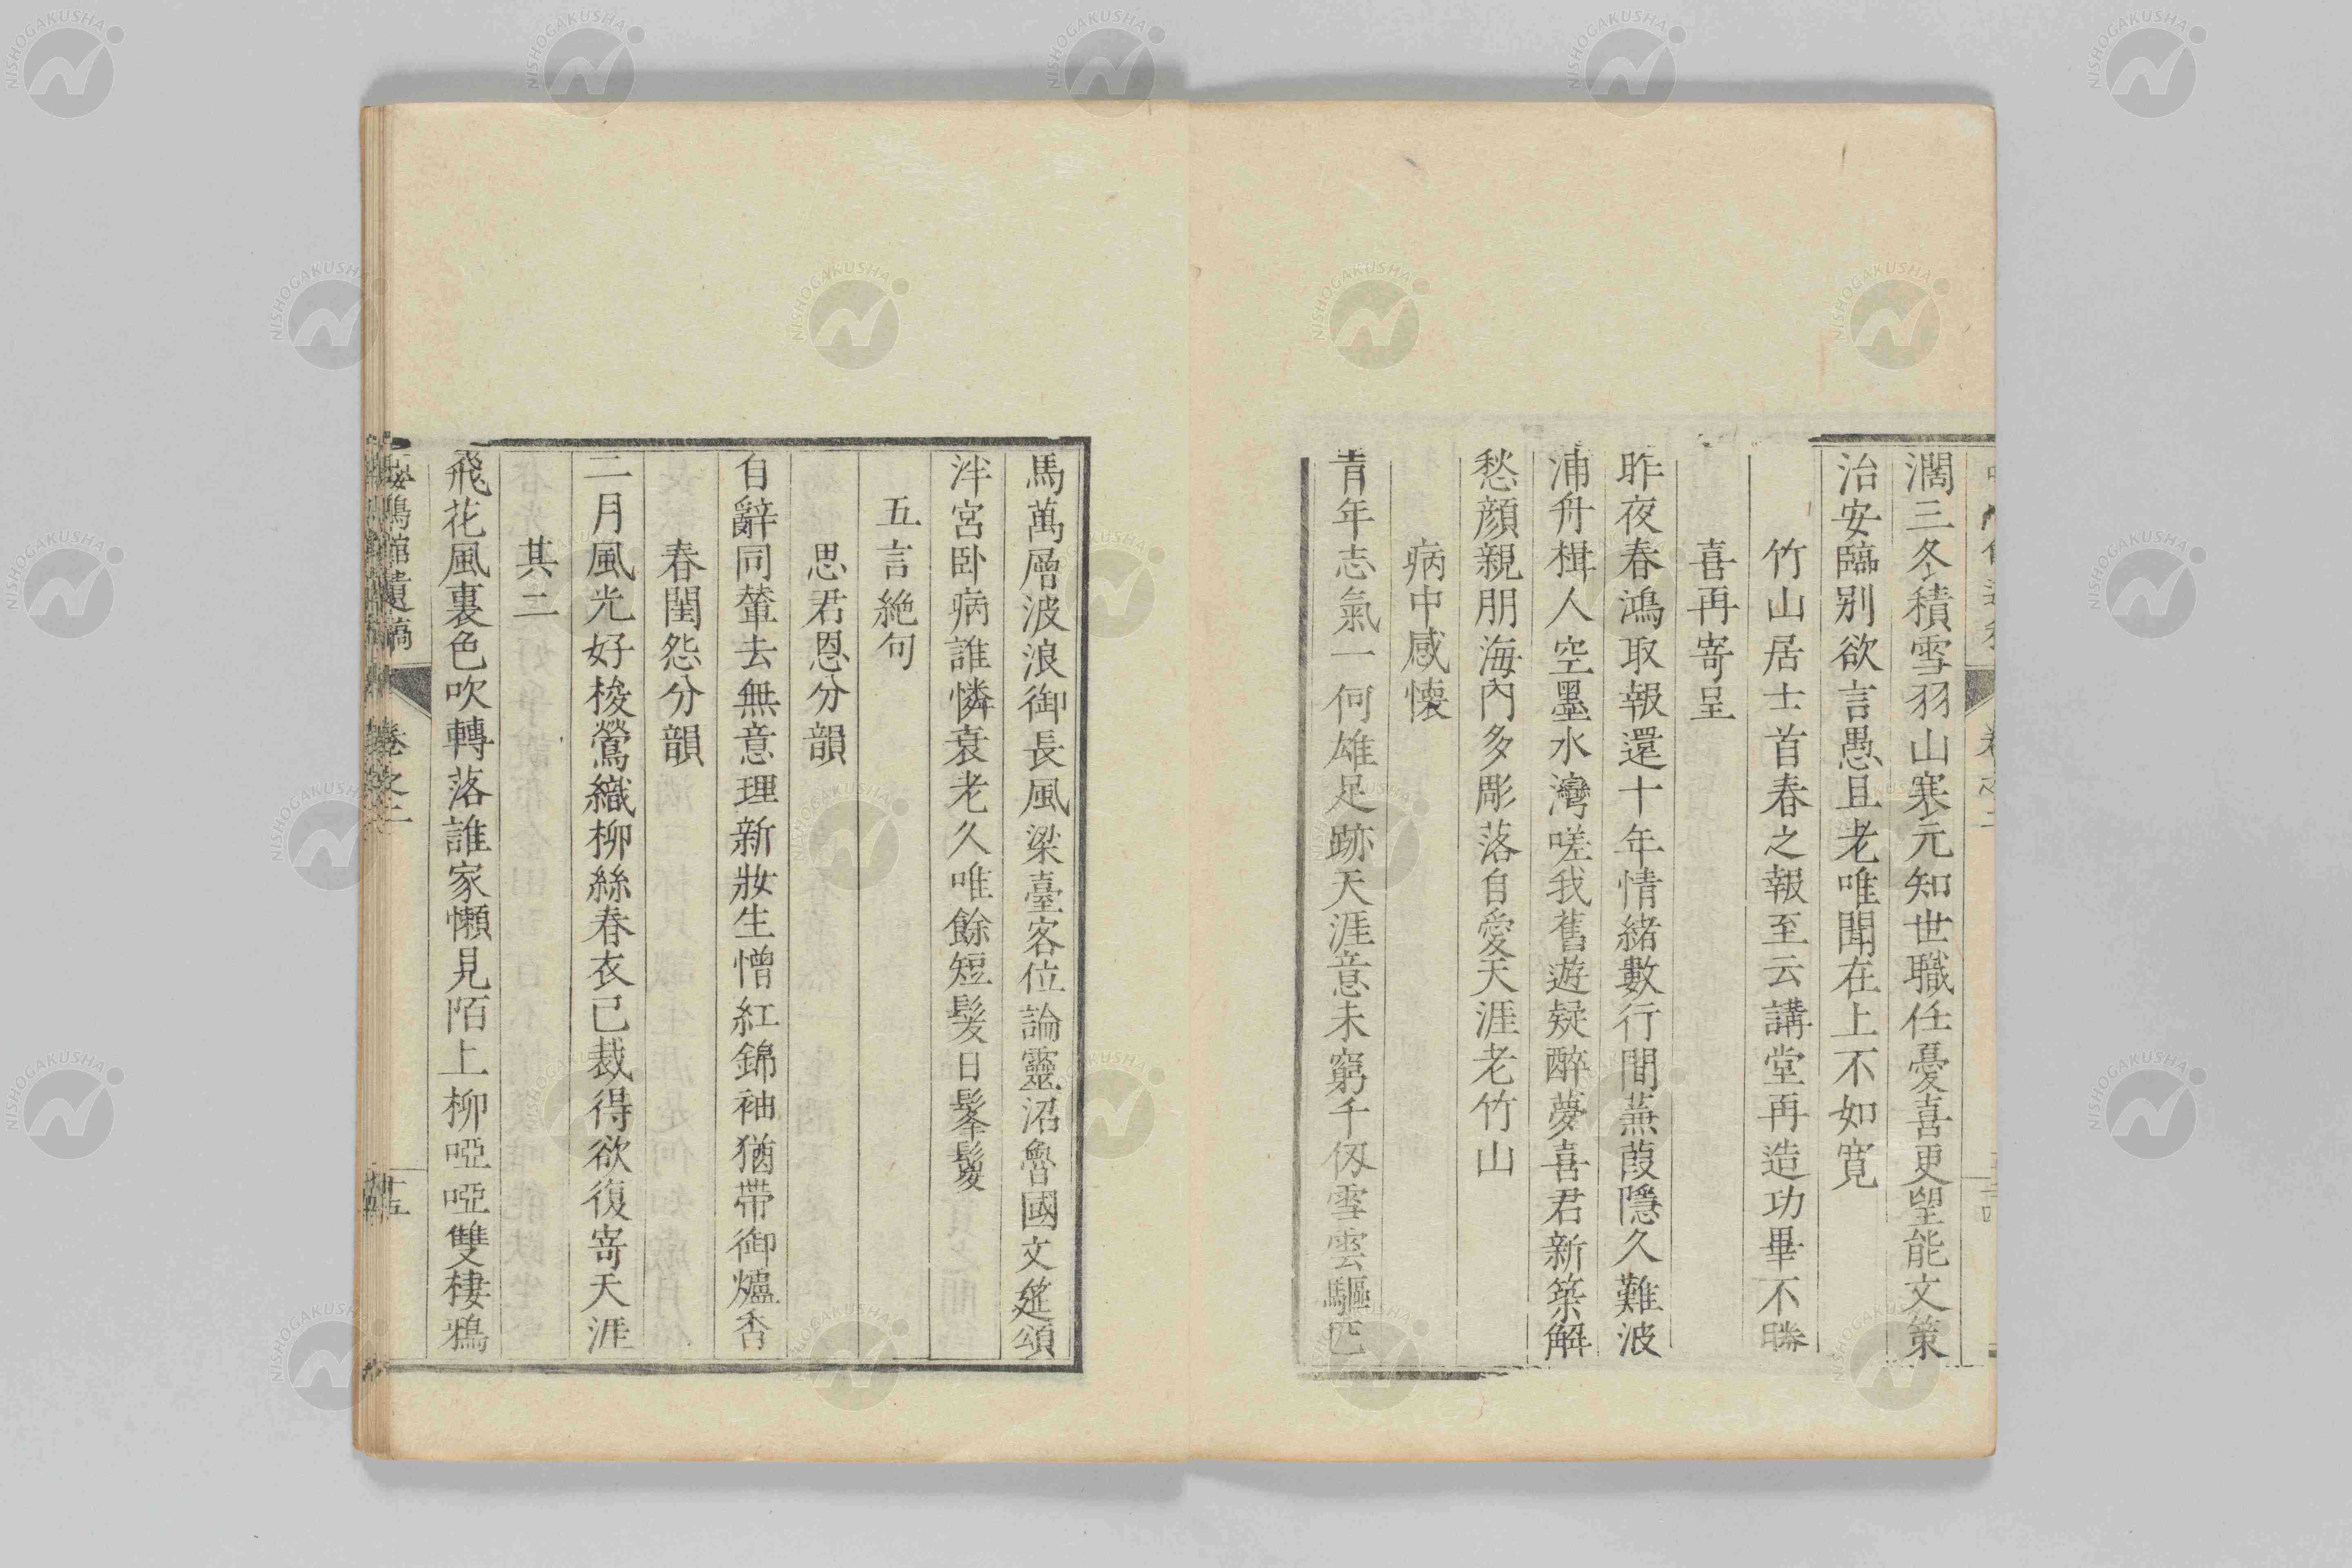 濶三冬積雪羽山寒元知世職任憂喜更望能文策
治安臨別欲言愚且老唯聞在上不如寛
竹山居士首春之報至云講堂再造功畢不勝
喜再寄呈
昨夜春鴻取報還十年情緒數行間蒹葭隱久難波
浦舟楫人空墨水灣嗟我舊遊疑醉夢喜君新築解
愁顔親朋海內多彫落自愛天涯老竹山
病中感懷
青年志氣一何雄足跡天涯意未窮千仭雪雲驅匹
馬萬層波浪御長風梁臺客位論靈沼魯國文筵頌
泮宮卧病誰憐衰老久唯餘短髮日鬅鬉
五言絶句
思君恩分韻
自辭同輦去無意理新妝生憎紅錦袖猶帶御爐香
春閨怨分韻
二月風光好梭鶯織柳絲春衣已裁得欲復寄天涯
其二
飛花風裏色吹轉落誰家懶見陌上柳啞啞雙棲鴉
館遺稿
卷之二
十五
NISHOGAKUSHA